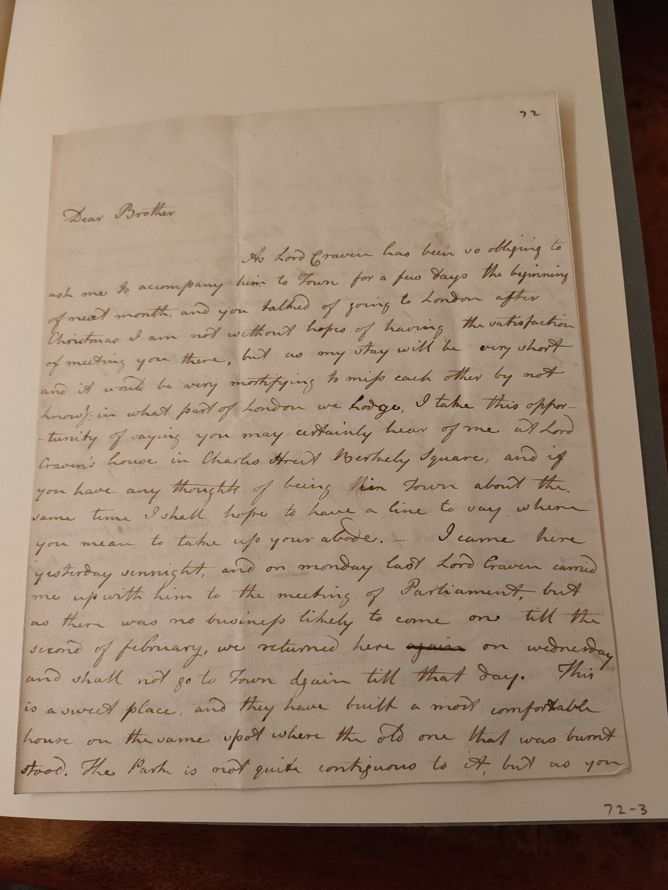 72
Dear Brother
As Lord Craven has been so obliging to
ask me to accompany him to Town for a few days the beginning
of next month, and you talked of going to London after
Christmas I am not without hopes of having the satisfaction
of meeting you there, but as my stay will be very short
and it would be very mortifying to miss each other by not
know.g in what part of London we Lodge, I take this oppor-
-tunity of saying you may certainly hear of me at Lord
Craven's house in Charles Street Berkely Square, and if
you have any thoughts of being in Town about the
same time I shall hope to have a line to say where
you mean to take up your abode. - I came here
yesterday sennight, and on monday last Lord Craven carried
me up with him to the meeting of Parliament, but
as there was no business likely to come on till the
second of february, we returned here again on wednesday
and shall not go to Town again till that day. This
is a sweet place, and they have built a most comfortable
house on the same spot where the old one that was burnt
stood. The Park is not quite contiguous to it, but as you
72-3